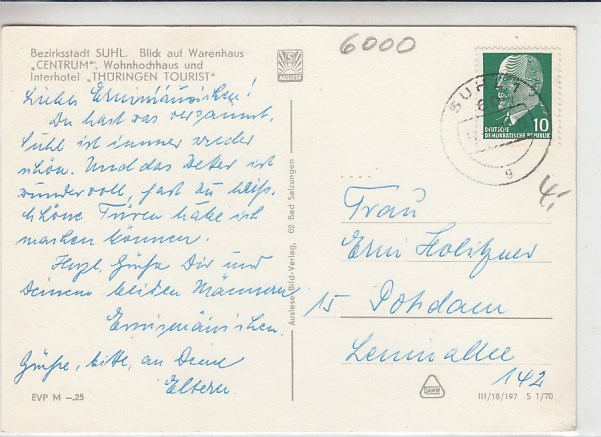 Bezirksstadt SUHL. Blick auf Warenhaus
„CENTRUM", Wohnhochhaus und
Interhotel „THÜRINGEN TOURIST"
6000
AUSLESE
SUHL 1
DEUTSCHE
DEMOKRATISCHE REPUBLIK
10
g
4,-
Liebes Ernimäuschen!
Du hast was versäumt.
Suhl ist immer wieder
schön. Und das Wetter ist
wundervoll, fast zu heiß.
Schöne Turen habe ich
machen können.
Herzl. Grüße Dir und
Deinen beiden Männern
Ernimäuschen.
Grüße, bitte, an Deine
Eltern.
Auslese-Bild-Verlag, 62 Bad Salzungen
Frau
Erni Holitzner
15 Potsdam
Lennéallee
142
EVP M –.25
III/18/197 S 1/70